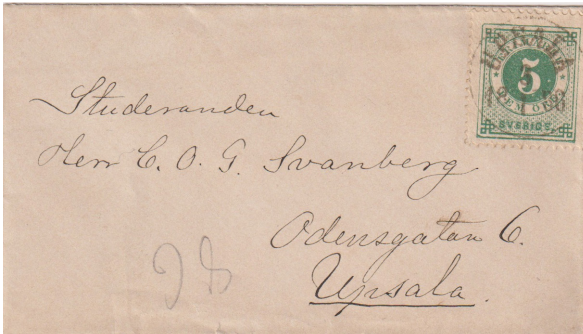 5
FEM ÖRE
SVERIGE
Studeranden
Herr C. O. G. Svanberg
Odensgatan 6.
Upsala.